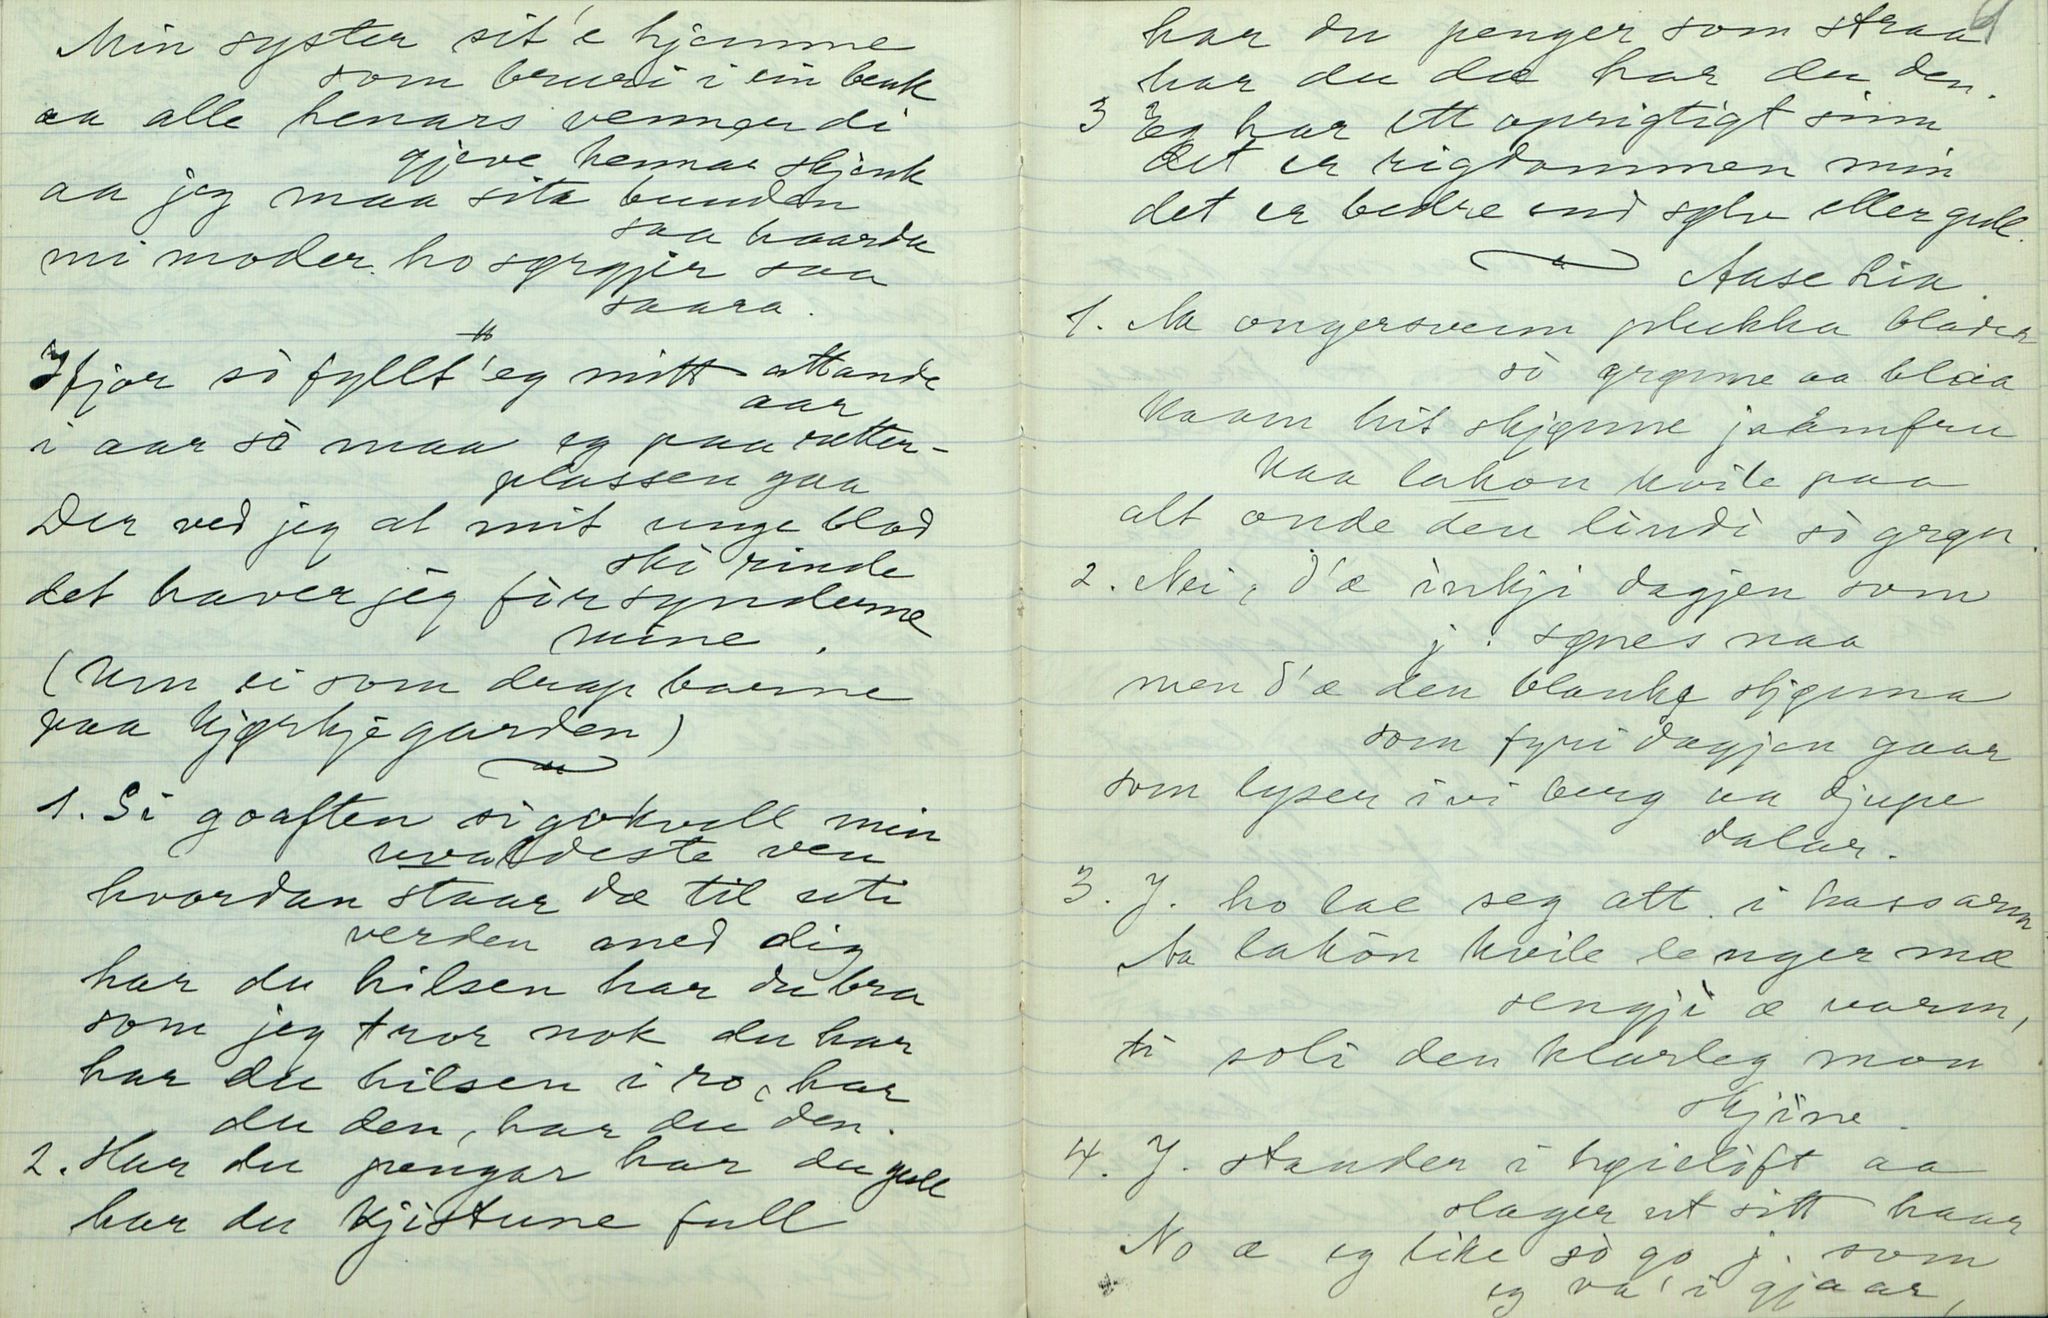 Min syster sit'e hjemme
som bruri i ein benk
aa alle henars venner di
gjeve hennar skjenk
aa jeg maa sita bunden
saa haarde
mi moder. ho sørgjer saa
saara.
Ifjor sò fyllt' eg mitt attande
aar
i aar sò maa eg paa retter-
plassen gaa
Der ved jeg at mit unge blod
ski rinde
det haver jeg fòr synderne
mine.
(Um ei som drap barne
paa kjørkjegarden)
1. Si goaften si gokvell min
uvaldeste ven
hvordan staar dæ til uti
verden med dig
har du hilsen har du bra
som jeg tror nok du har
har du hilsen i ro, har
du den, har du den.
2. Har du pengar har du gull
har du kjistune full
har du penger som straa
har du dæ har du den.
3 Eg har ett oprigtigt sinn
det er rigdommen min
det er bedre end sølv eller gull.
Aase Lia.
1. Aa ongersveinn plukka blader
sò grøne aa blaa
Kaam hit skjønne jaamfru
kaa lakon kvile paa
alt onde den lindi sò grøn.
2. Nei, d'æ inkji dagjen som
j. synes naa
men d'æ den blanke stjønna
som fyri dagjen gaar
som lyser ivi berg aa djupe
dalar.
3. J. ho lae seg att. i hassarm
Aa lakòn kvile lenger mæ
sengji æ varm,
ti soli den klarleg mon
skjine.
4. J. stander i høieloft aa
slager ut sitt haar
No æ eg like sò go j. som
eg va' i gjaar,